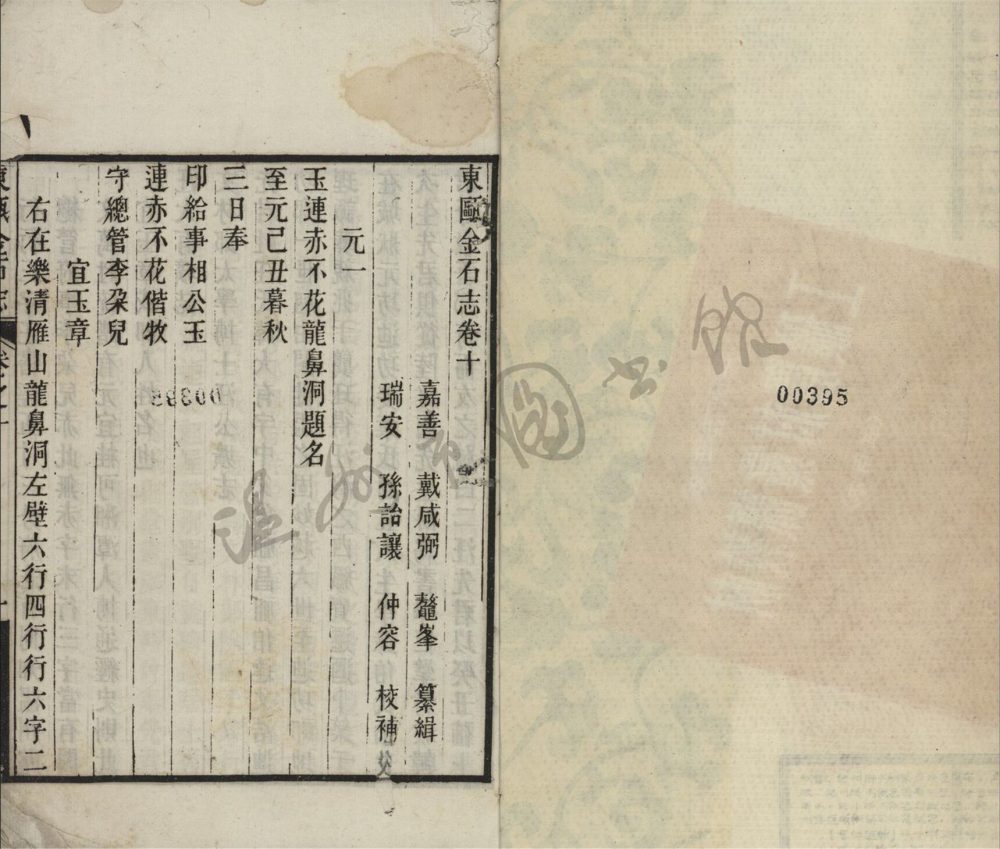 東甌金石志卷十
嘉善 戴咸弼 鼇峯 纂緝
瑞安 孫詒讓 仲容 校補
元一
玉連赤不花龍鼻洞題名
至元己丑暮秋
三日奉
印給事相公玉
連赤不花偕牧
守總管李朶兒
宜玉章
右在樂清雁山龍鼻洞左壁六行四行行六字二
00395
溫州市圖书館